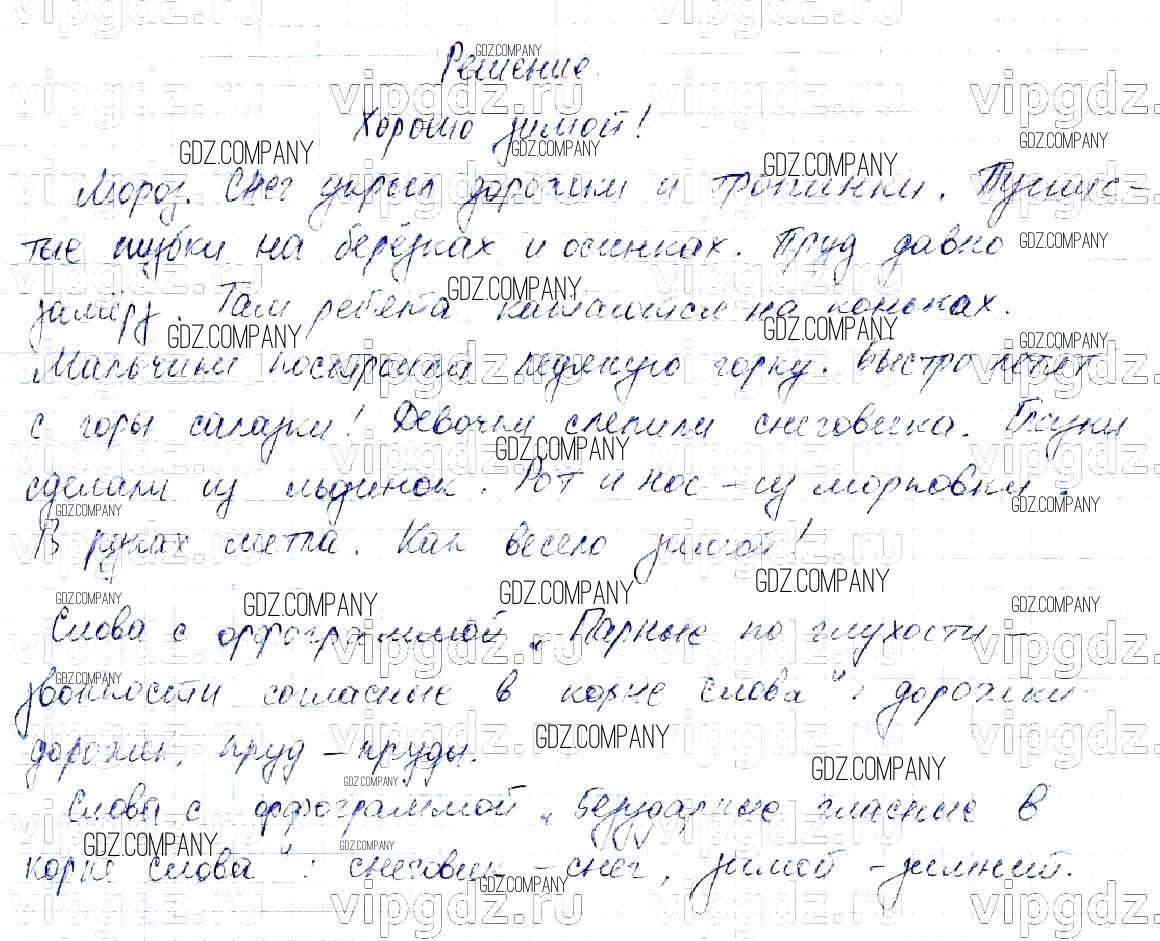 Решение.
Хорошо зимой!
Мороз. Снег укрыл дорожки и тропинки. Пушис-
тые шубки на берёзках и осинках. Пруд давно
замёрз. Там ребята катаются на коньках.
Мальчики построили ледяную горку. Быстро летят
с горы салазки! Девочки слепили снеговика. Глазки
сделали из льдинок. Рот и нос – из морковки.
В руках метла. Как весело зимой!
Слова с орфограммой „Парные по глухости –
звонкости согласные в корне слова“: дорожки –
дорожек, пруд – пруды.
Слова с орфограммой „Безударные гласные в
корне слова“: снеговик – снег, зимой – зимний.
GDZ.COMPANY
vipgdz.ru